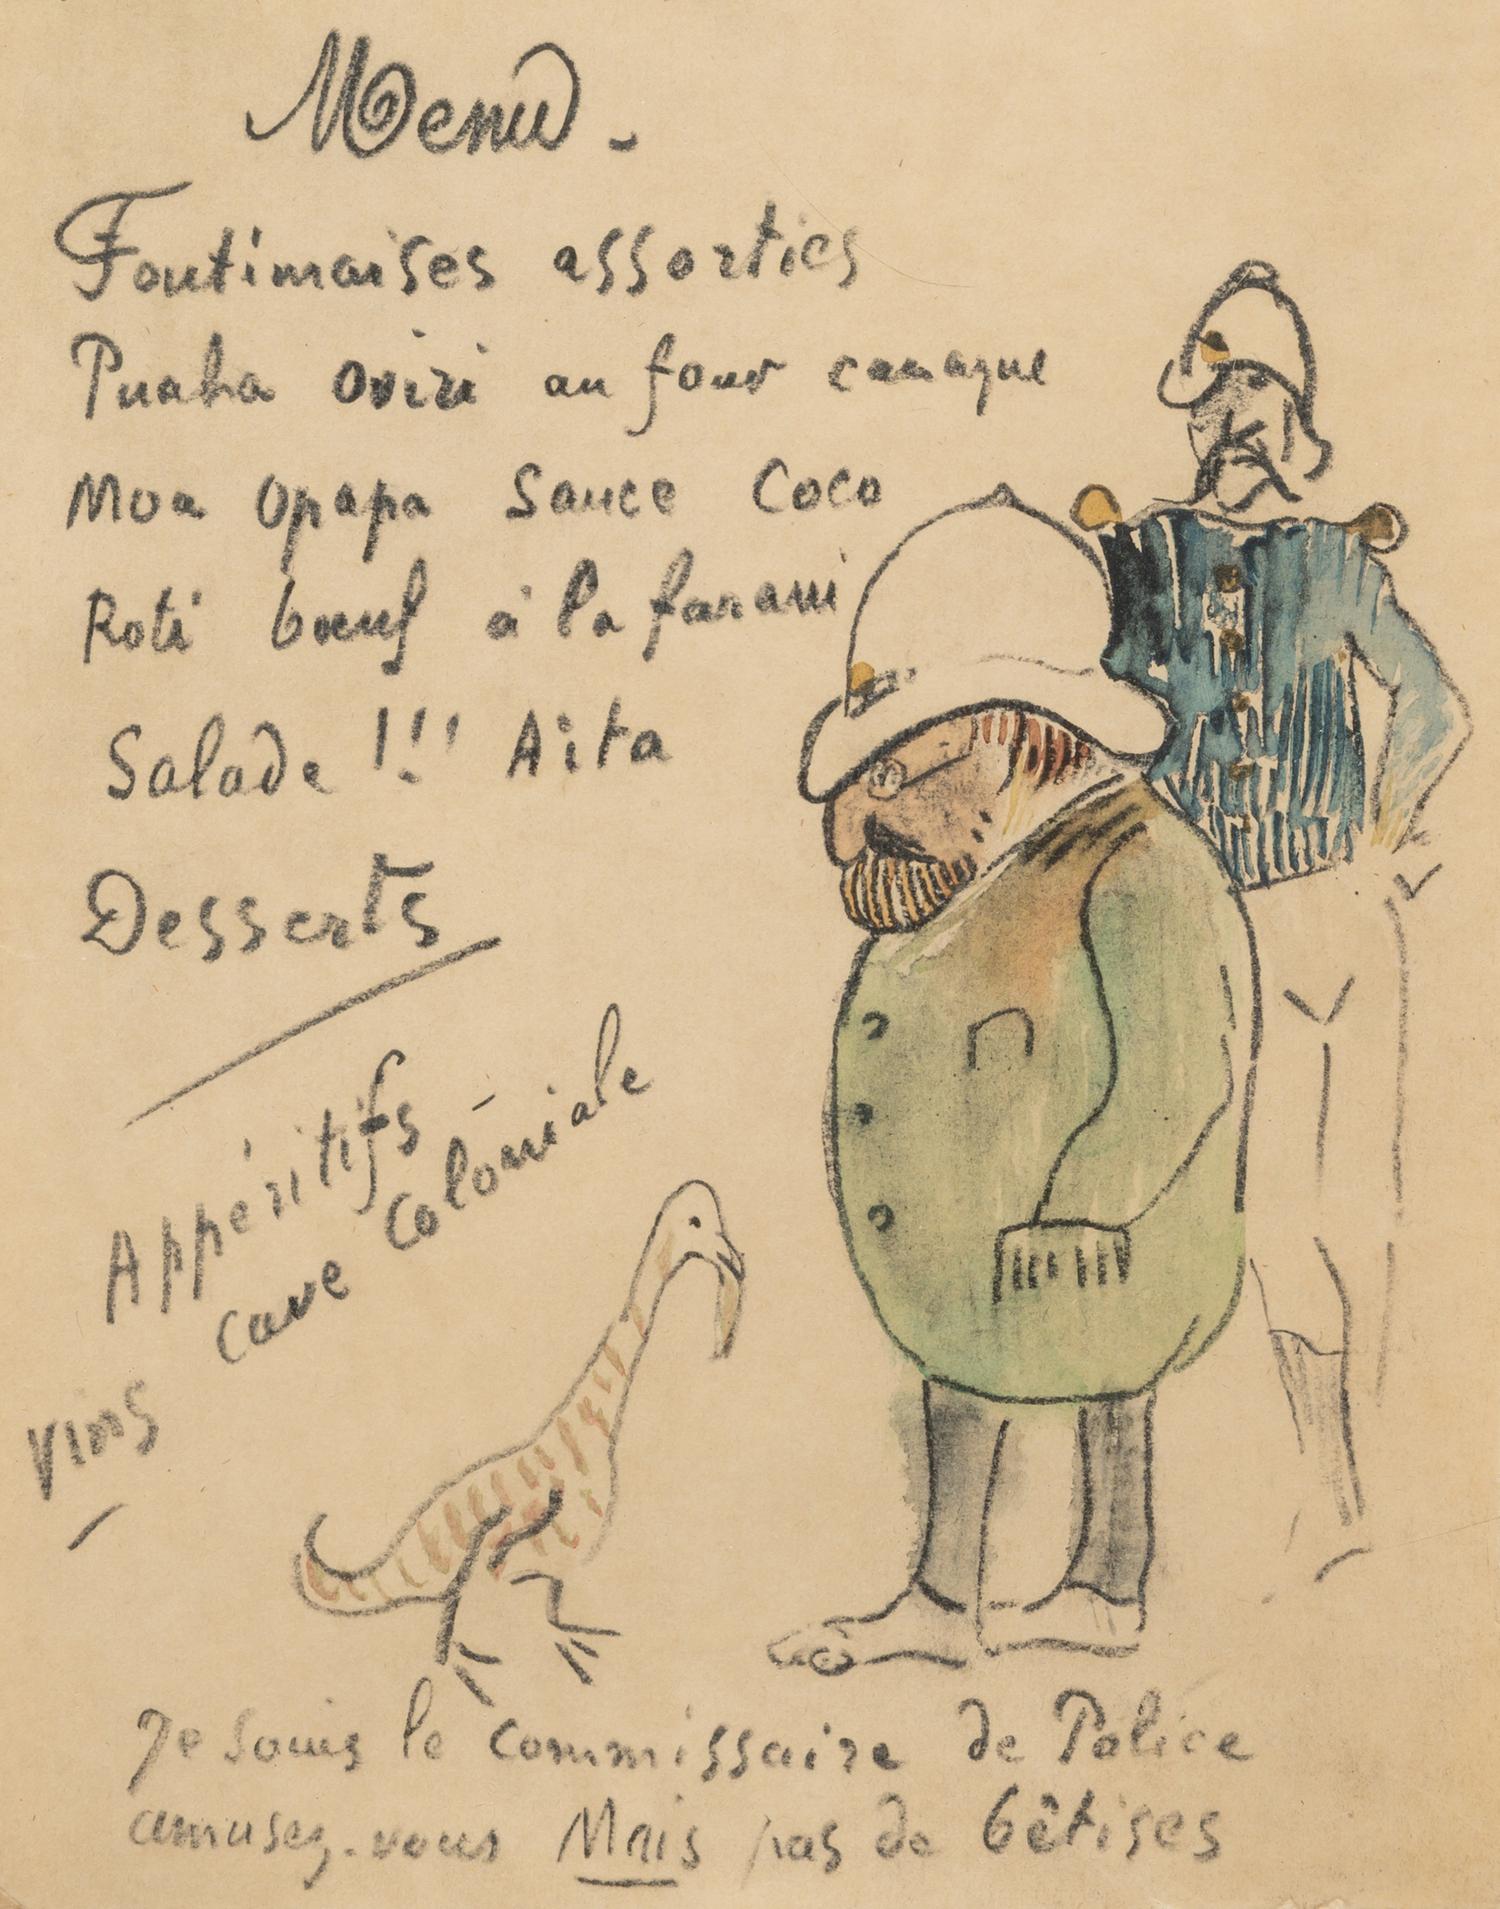 Menu -
Foutimaises assorties
Puaha oviri au four canaque
Moa Opapa Sauce Coco
Roti bœuf à la farani
Salade !!! Aita
Desserts
Appéritifs
cave Coloniale
Vins
Je souis le commissaire de Police
amusez-vous Mais pas de bêtises